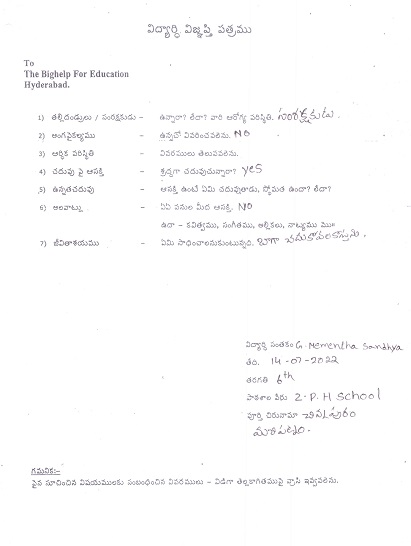 విద్యార్థి విజ్ఞప్తి పత్రము
To
The Bighelp For Education
Hyderabad.
1) తల్లిదండ్రులు / సంరక్షకుడు - ఉన్నారా? లేదా? వారి ఆరోగ్య పరిస్థితి. సంరక్షకుడు.
2) అంగవైకల్యము - ఉన్నచో వివరించవలెను. NO
3) ఆర్థిక పరిస్థితి - వివరములు తెలుపవలెను.
4) చదువు పై ఆసక్తి - శ్రద్ధగా చదువుచున్నారా? yes
5) ఉన్నతచదువు - ఆసక్తి ఉంటే ఏమి చదువుతాడు, స్థోమత ఉందా? లేదా?
6) అలవాట్లు - ఏఏ పనుల మీద ఆసక్తి. NO
ఉదా - కవిత్వము, సంగీతము, అల్లికలు, నాట్యము మొ॥
7) జీవితాశయము - ఏమి సాధించాలనుకుంటున్నది. బాగా
విద్యార్థి సంతకం G. Mementha Sandhya
తేది. 14-07-2022
తరగతి 6th
పాఠశాల పేరు Z.P.H School
పూర్తి చిరునామా
గమనిక:-
పైన సూచించిన విషయములకు సంబంధించిన వివరములు - విడిగా తెల్లకాగితముపై వ్రాసి ఇవ్వవలెను.